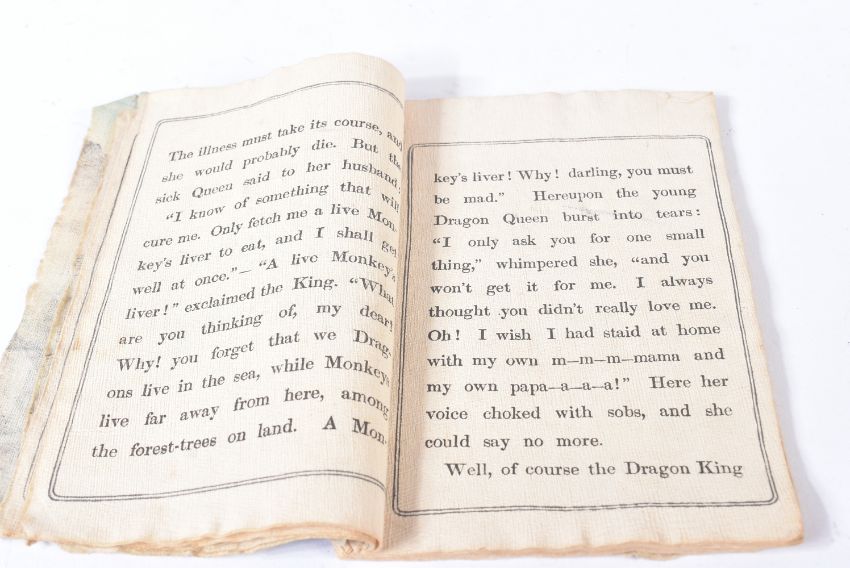 The illness must take its course, and
she would probably die. But the
sick Queen said to her husband:
"I know of something that will
cure me. Only fetch me a live Mon-
key's liver to eat, and I shall get
well at once."— "A live Monkey's
liver!" exclaimed the King. "What
are you thinking of, my dear!
Why! you forget that we Drag-
ons live in the sea, while Monkeys
live far away from here, among
the forest-trees on land. A Mon-
key's liver! Why! darling, you must
be mad." Hereupon the young
Dragon Queen burst into tears:
"I only ask you for one small
thing," whimpered she, "and you
won't get it for me. I always
thought you didn't really love me.
Oh! I wish I had staid at home
with my own m—m—m—mama and
my own papa—a—a—a!" Here her
voice choked with sobs, and she
could say no more.
Well, of course the Dragon King